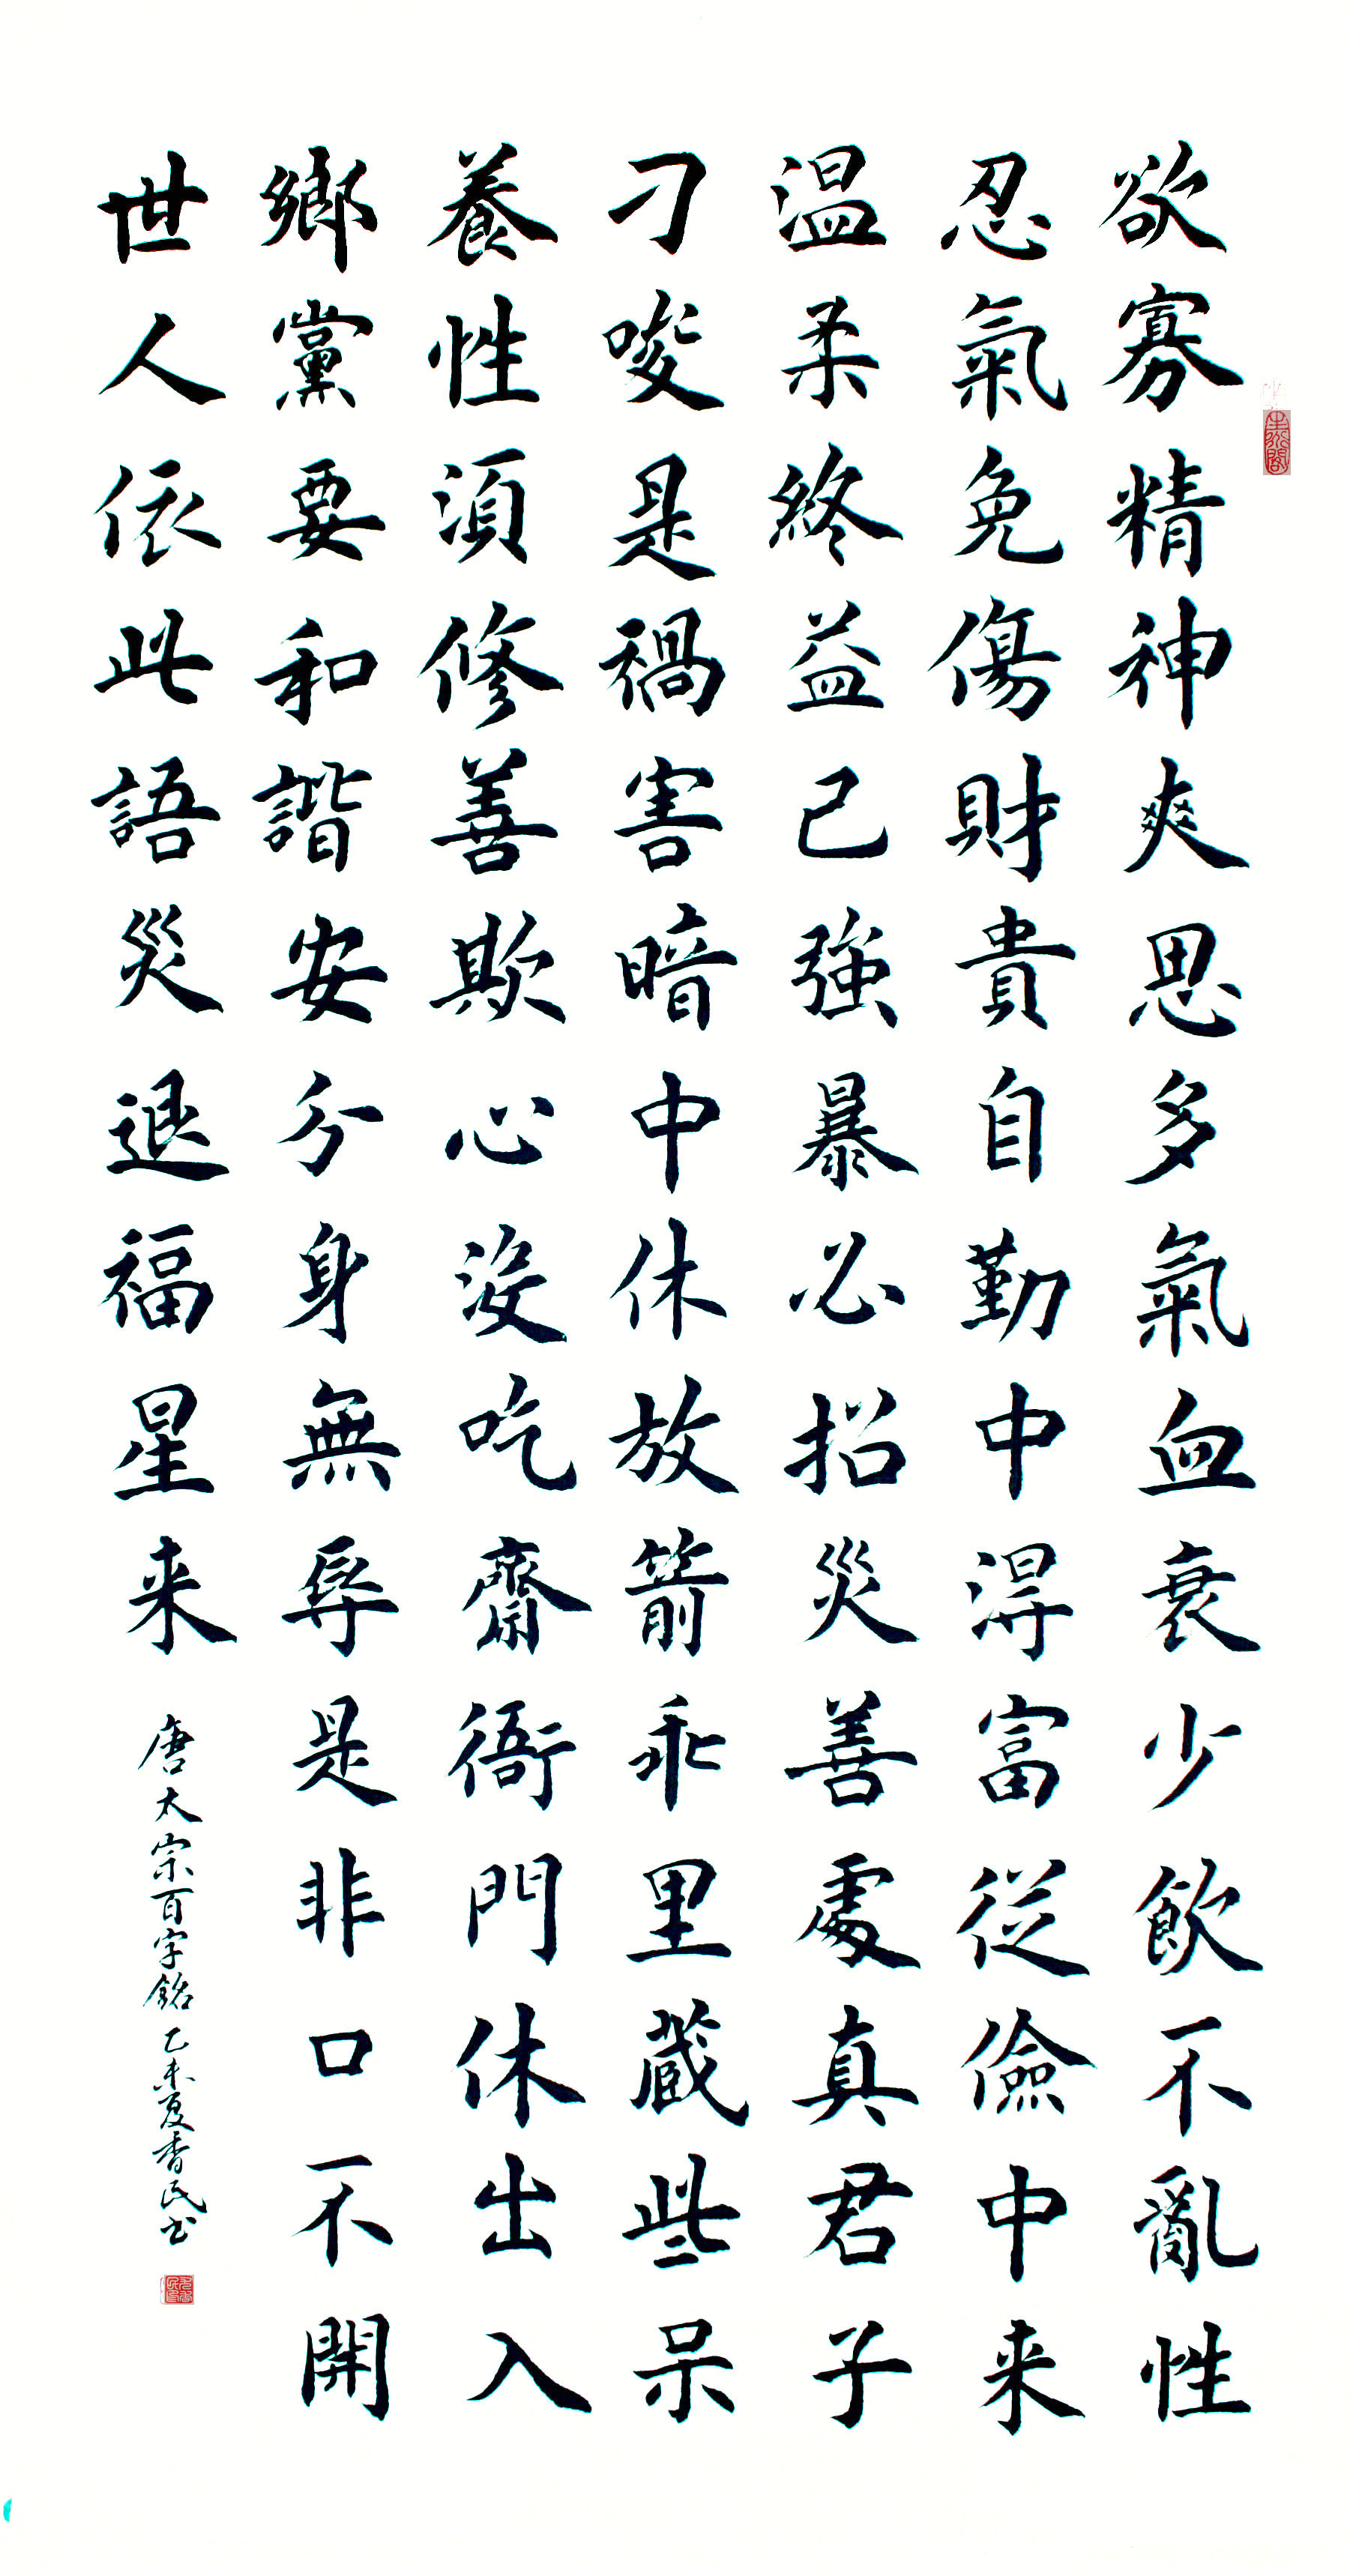 欲寡精神爽思多氣血衰少飲不亂性
忍氣免傷財貴自勤中淂富從儉中来
温柔終益己強暴必招災善處真君子
刁唆是禍害暗中休放箭乖里藏些呆
養性須修善欺心沒吃齋衙門休出入
鄉黨要和諧安分身無辱是非口不開
世人依此語災退福星来
唐太宗百字銘乙未夏香民書